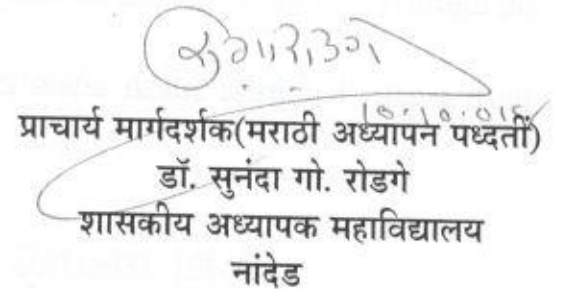 प्राचार्य मार्गदर्शक(मराठी अध्यापन पध्दती)
डॉ. सुनंदा गो. रोडगे
शासकीय अध्यापक महाविद्यालय
नांदेड